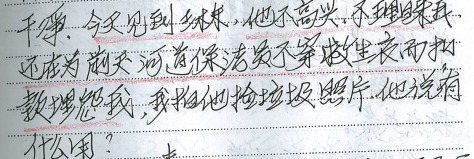 干净。今天见到林林，他不高兴，不理睬我，
还在为前天河道保洁员不穿救生衣而扣
款埋怨我，我拍他捡垃圾照片，他说有
什么用？